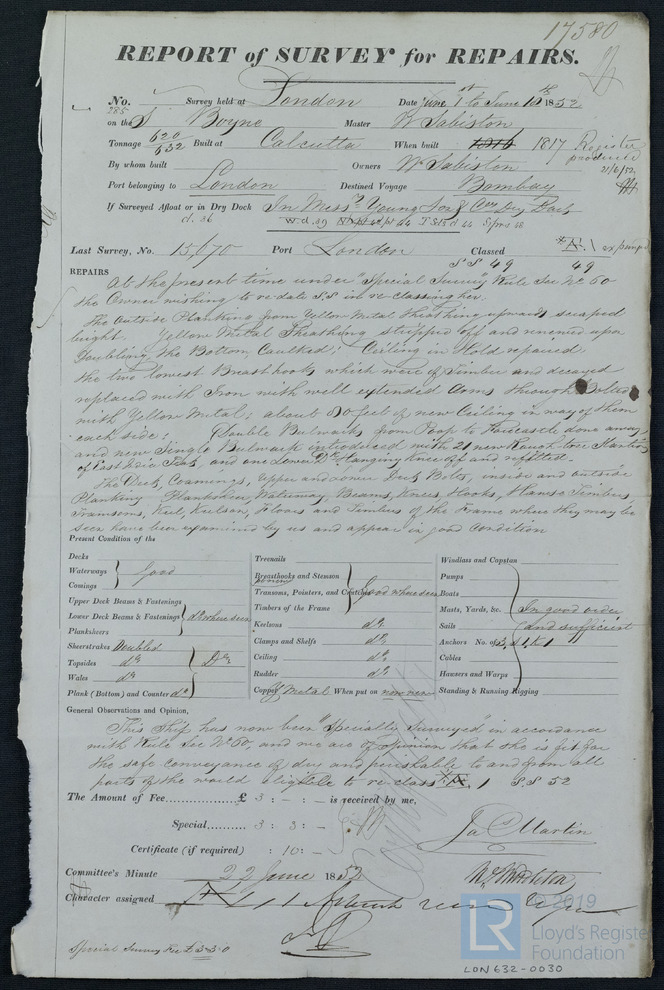 17580
REPORT of SURVEY for REPAIRS.
No. 285 Survey held at London Date June 1st to June 18th 1852
on the S Boyne Master W Sabiston
Tonnage 620/632 Built at Calcutta When built 1817 Register produced 21/6/52
By whom built Owners W Sabiston
Port belonging to London Destined Voyage Bombay
If Surveyed Afloat or in Dry Dock In Messrs Young Son & Cos Dry Dock
Last Survey, No. 15,670 Port London Classed
SS 49 49
REPAIRS
At the present time under "Special Survey" Rule Sec No 60
the Owner wishing to re-date S.S in re-classing her.
The Outside Planking from Yellow Metal Sheathing upwards scraped
bright. Yellow Metal Sheathing stripped off and renewed upon
Doubling, the Bottom Caulked; Ceiling in Hold repaired
the two lowest Breasthooks which were of Timber and decayed
replaced with Iron with well extended Arms through Bolted
with Yellow Metal; about 80 feet of new Ceiling in way of them
each side; Double Bulwarks from Poop to Forecastle done away
and new Single Bulwark introduced with 21 new Roughtree Stantions
of East India Teak, and one Lower Dk Hanging Knee off and refitted.
The Decks, Coamings, Upper and Lower Deck Bolts, inside and outside
Planking Planksheer, Waterway, Beams, Knees Hooks, Hawse Timbers,
Transoms, Keel, Keelson, Floors and Timbers of the Frame where they may be
seen have been examined by us and appear in good Condition
Present Condition of the
Decks
Waterways good
Comings
Upper Deck Beams & Fastenings
Lower Deck Beams & Fastenings do where seen
Plansheers
Sheerstrakes Doubled
Topsides do Do
Wales do
Plank (Bottom) and Counter do
Treenails
Breasthooks and Stemson
Transoms, Pointers, and Crutches Good where seen
Timbers of the Frame
Keelsons do
Clamps and Shelfs do
Ceiling do
Rudder do
Copper Y Metal When put on now new
Windlass and Capstan
Pumps
Boats
Masts, Yards, &c. In good order
Sails and sufficient
Anchors No. of 3, 1, & 1
Cables
Hawsers and Warps
Standing & Running Rigging
General Observations and Opinion,
This Ship has now been "Specially Surveyed" in accordance
with Rule Sec No 60, and we are of opinion that she is fit for
the safe conveyance of dry and perishable to and from all
parts of the world eligible to re-class *Æ. 1 SS 52
The Amount of Fee £ 3 : - : - is received by me,
Special 3 : 3 : -
Certificate (if required) : 10 : -
Ja Martin
Committee's Minute 22 June 1852
W Middleton
Character assigned
Special Survey Fee £ 3.3.0
© 2019
LR
Lloyd's Register
Foundation
LON632-0030